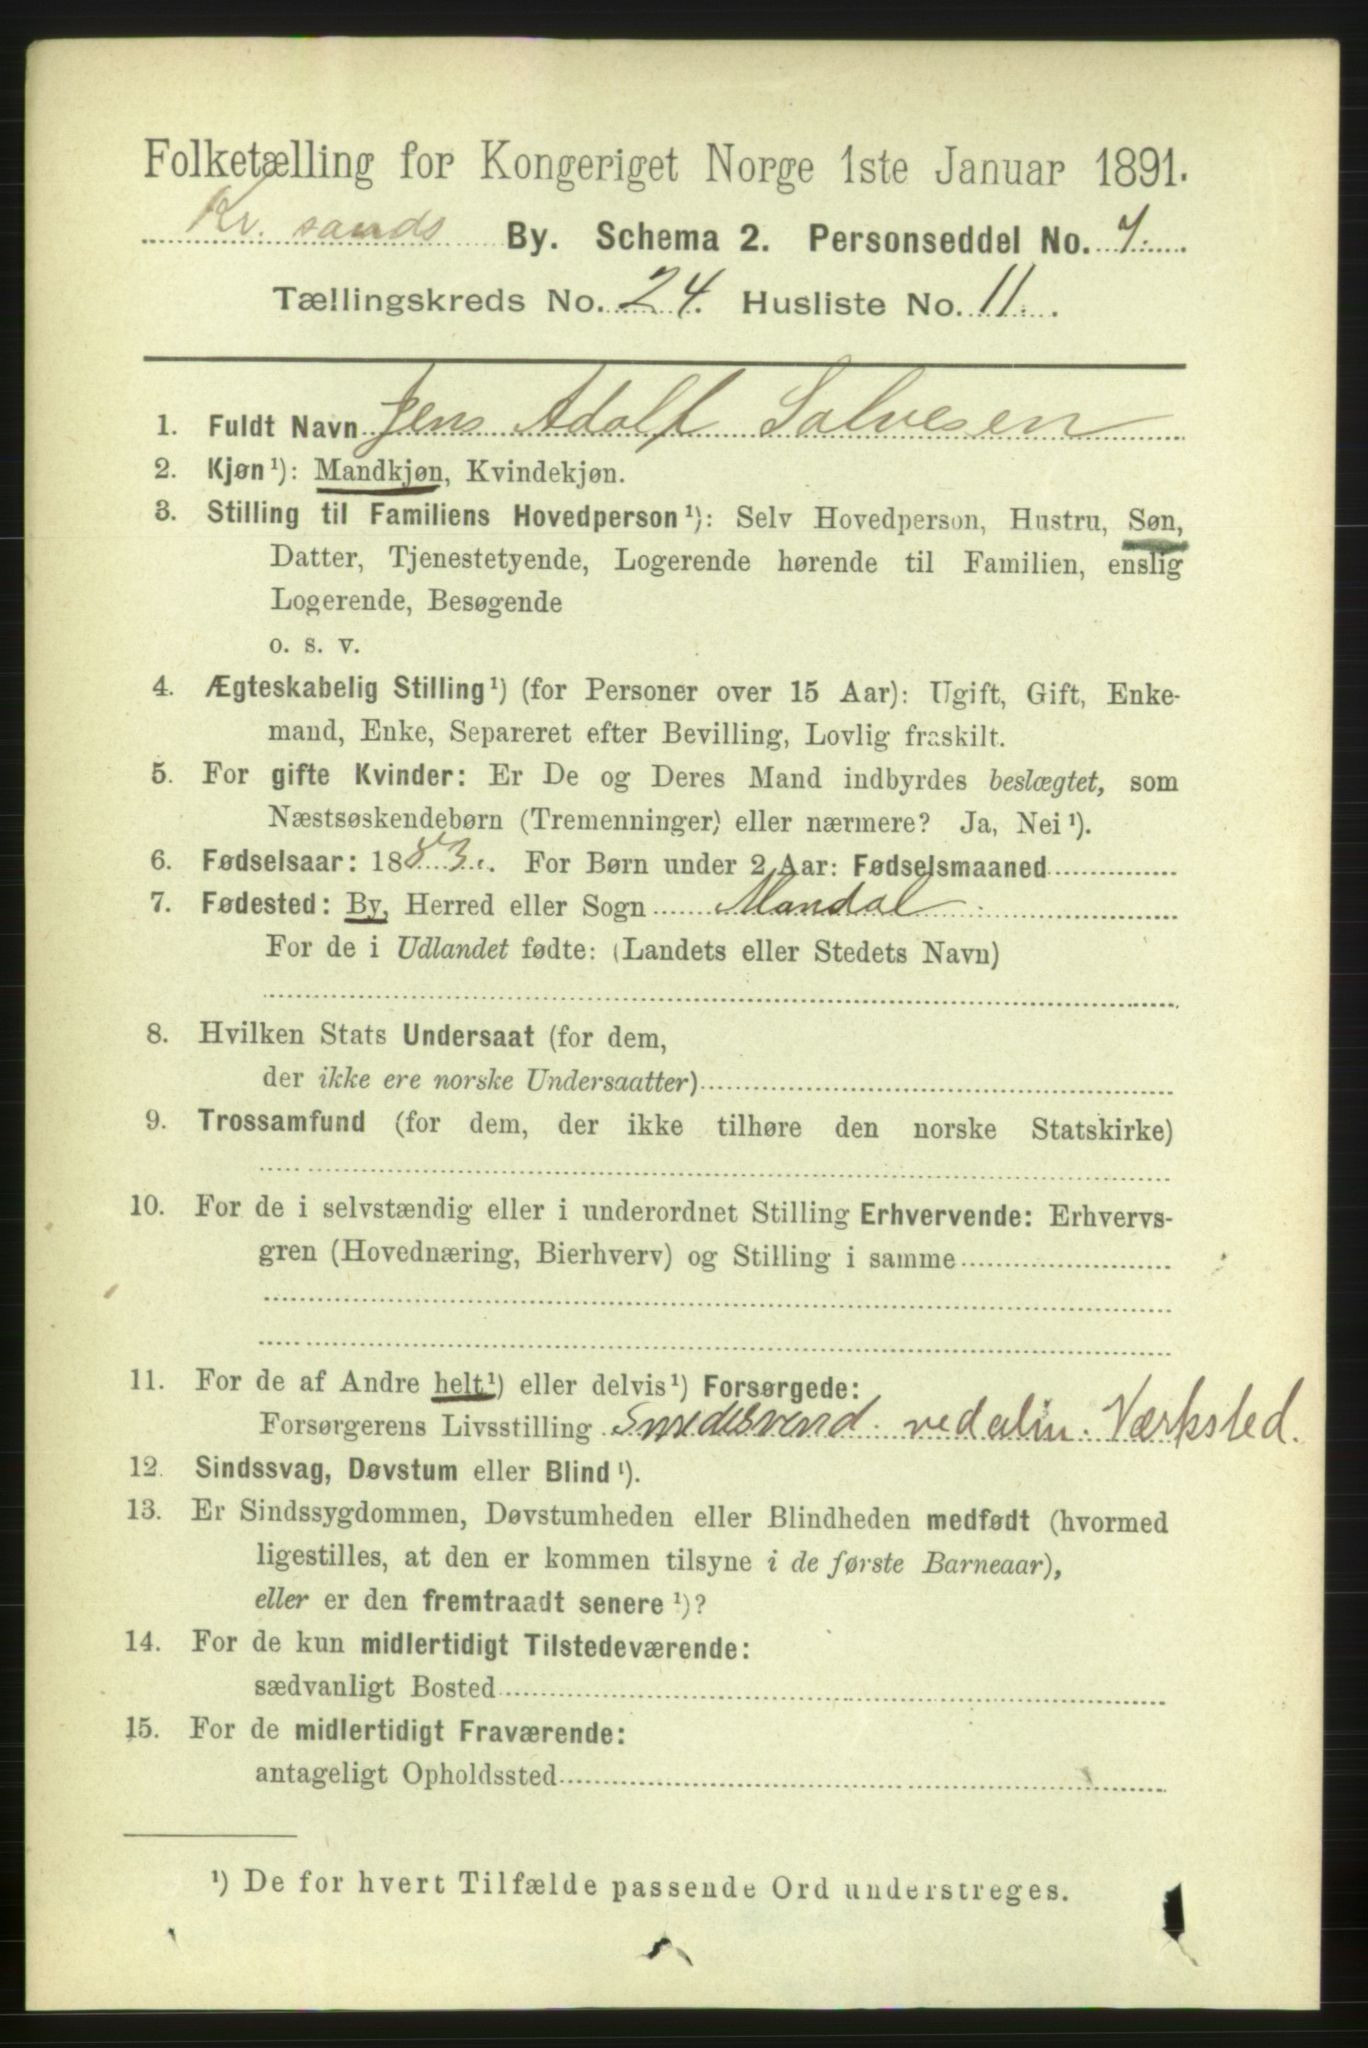 Folketælling for Kongeriget Norge 1ste Januar 1891.
Kr. sands By. Schema 2. Personseddel No. 7.
Tællingskreds No. 24. Husliste No. 11.
1. Fuldt Navn Jens Adolf Salvesen
2. Kjøn¹): Mandkjøn, Kvindekjøn.
3. Stilling til Familiens Hovedperson¹): Selv Hovedperson, Hustru, Søn,
Datter, Tjenestetyende, Logerende hørende til Familien, enslig
Logerende, Besøgende
o. s. v.
4. Ægteskabelig Stilling¹) (for Personer over 15 Aar): Ugift, Gift, Enke-
mand, Enke, Separeret efter Bevilling, Lovlig fraskilt.
5. For gifte Kvinder: Er De og Deres Mand indbyrdes beslægtet, som
Næstsøskendebørn (Tremenninger) eller nærmere? Ja, Nei¹).
6. Fødselsaar: 1883. For Børn under 2 Aar: Fødselsmaaned
7. Fødested: By, Herred eller Sogn Mandal
For de i Udlandet fødte: (Landets eller Stedets Navn)
8. Hvilken Stats Undersaat (for dem,
der ikke ere norske Undersaatter)
9. Trossamfund (for dem, der ikke tilhøre den norske Statskirke)
10. For de i selvstændig eller i underordnet Stilling Erhvervende: Erhvervs-
gren (Hovednæring, Bierhverv) og Stilling i samme
11. For de af Andre helt¹) eller delvis¹) Forsørgede:
Forsørgerens Livsstilling Smedesvend. ved alm. Værksted.
12. Sindssvag, Døvstum eller Blind¹).
13. Er Sindssygdommen, Døvstumheden eller Blindheden medfødt (hvormed
ligestilles, at den er kommen tilsyne i de første Barneaar),
eller er den fremtraadt senere¹)?
14. For de kun midlertidigt Tilstedeværende:
sædvanligt Bosted
15. For de midlertidigt Fraværende:
antageligt Opholdssted
¹) De for hvert Tilfælde passende Ord understreges.